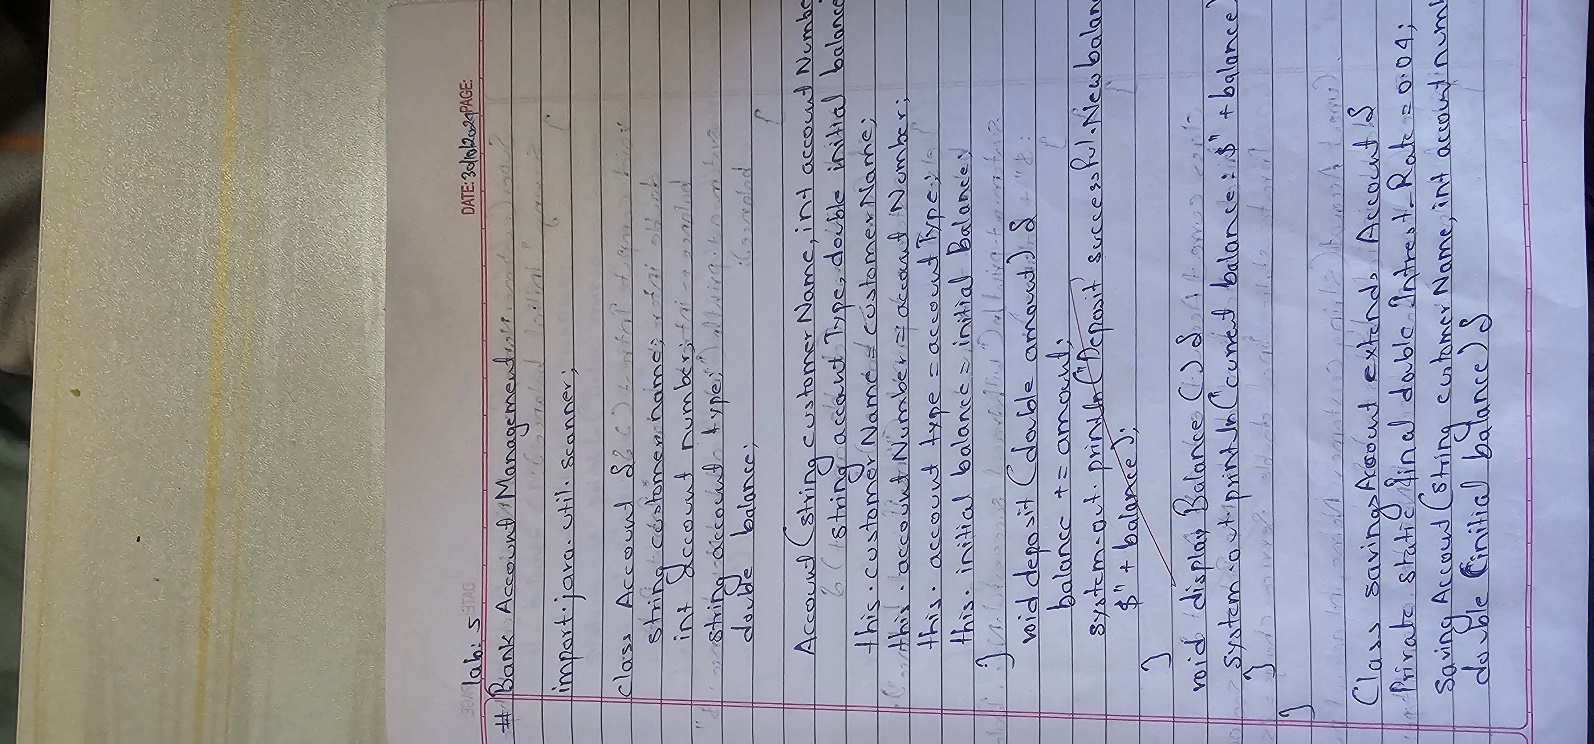 lab: 5
DATE: 30/10/2024 PAGE:
# Bank Account Management:
import java.util.scanner;
class Account {
string customer name;
int account number;
string account type;
double balance;
Account (string customer Name, int account Numbe
string account Type, double initial balance
this. customer Name = customer Name;
this. account Number = account Number;
this. account type = account Type;
this. initial balance = initial balance;
}
void deposit (double amount) {
balance += amount;
system.out.println("Deposit successful. New balan
$" + balance);
}
void display Balance () {
system.out println ("current balance: $" + balance)
}
}
Class savings Account extends Account {
Private static final double Intrest_Rate = 0.04;
Saving Account (string customer Name, int account num
double initial balance) {